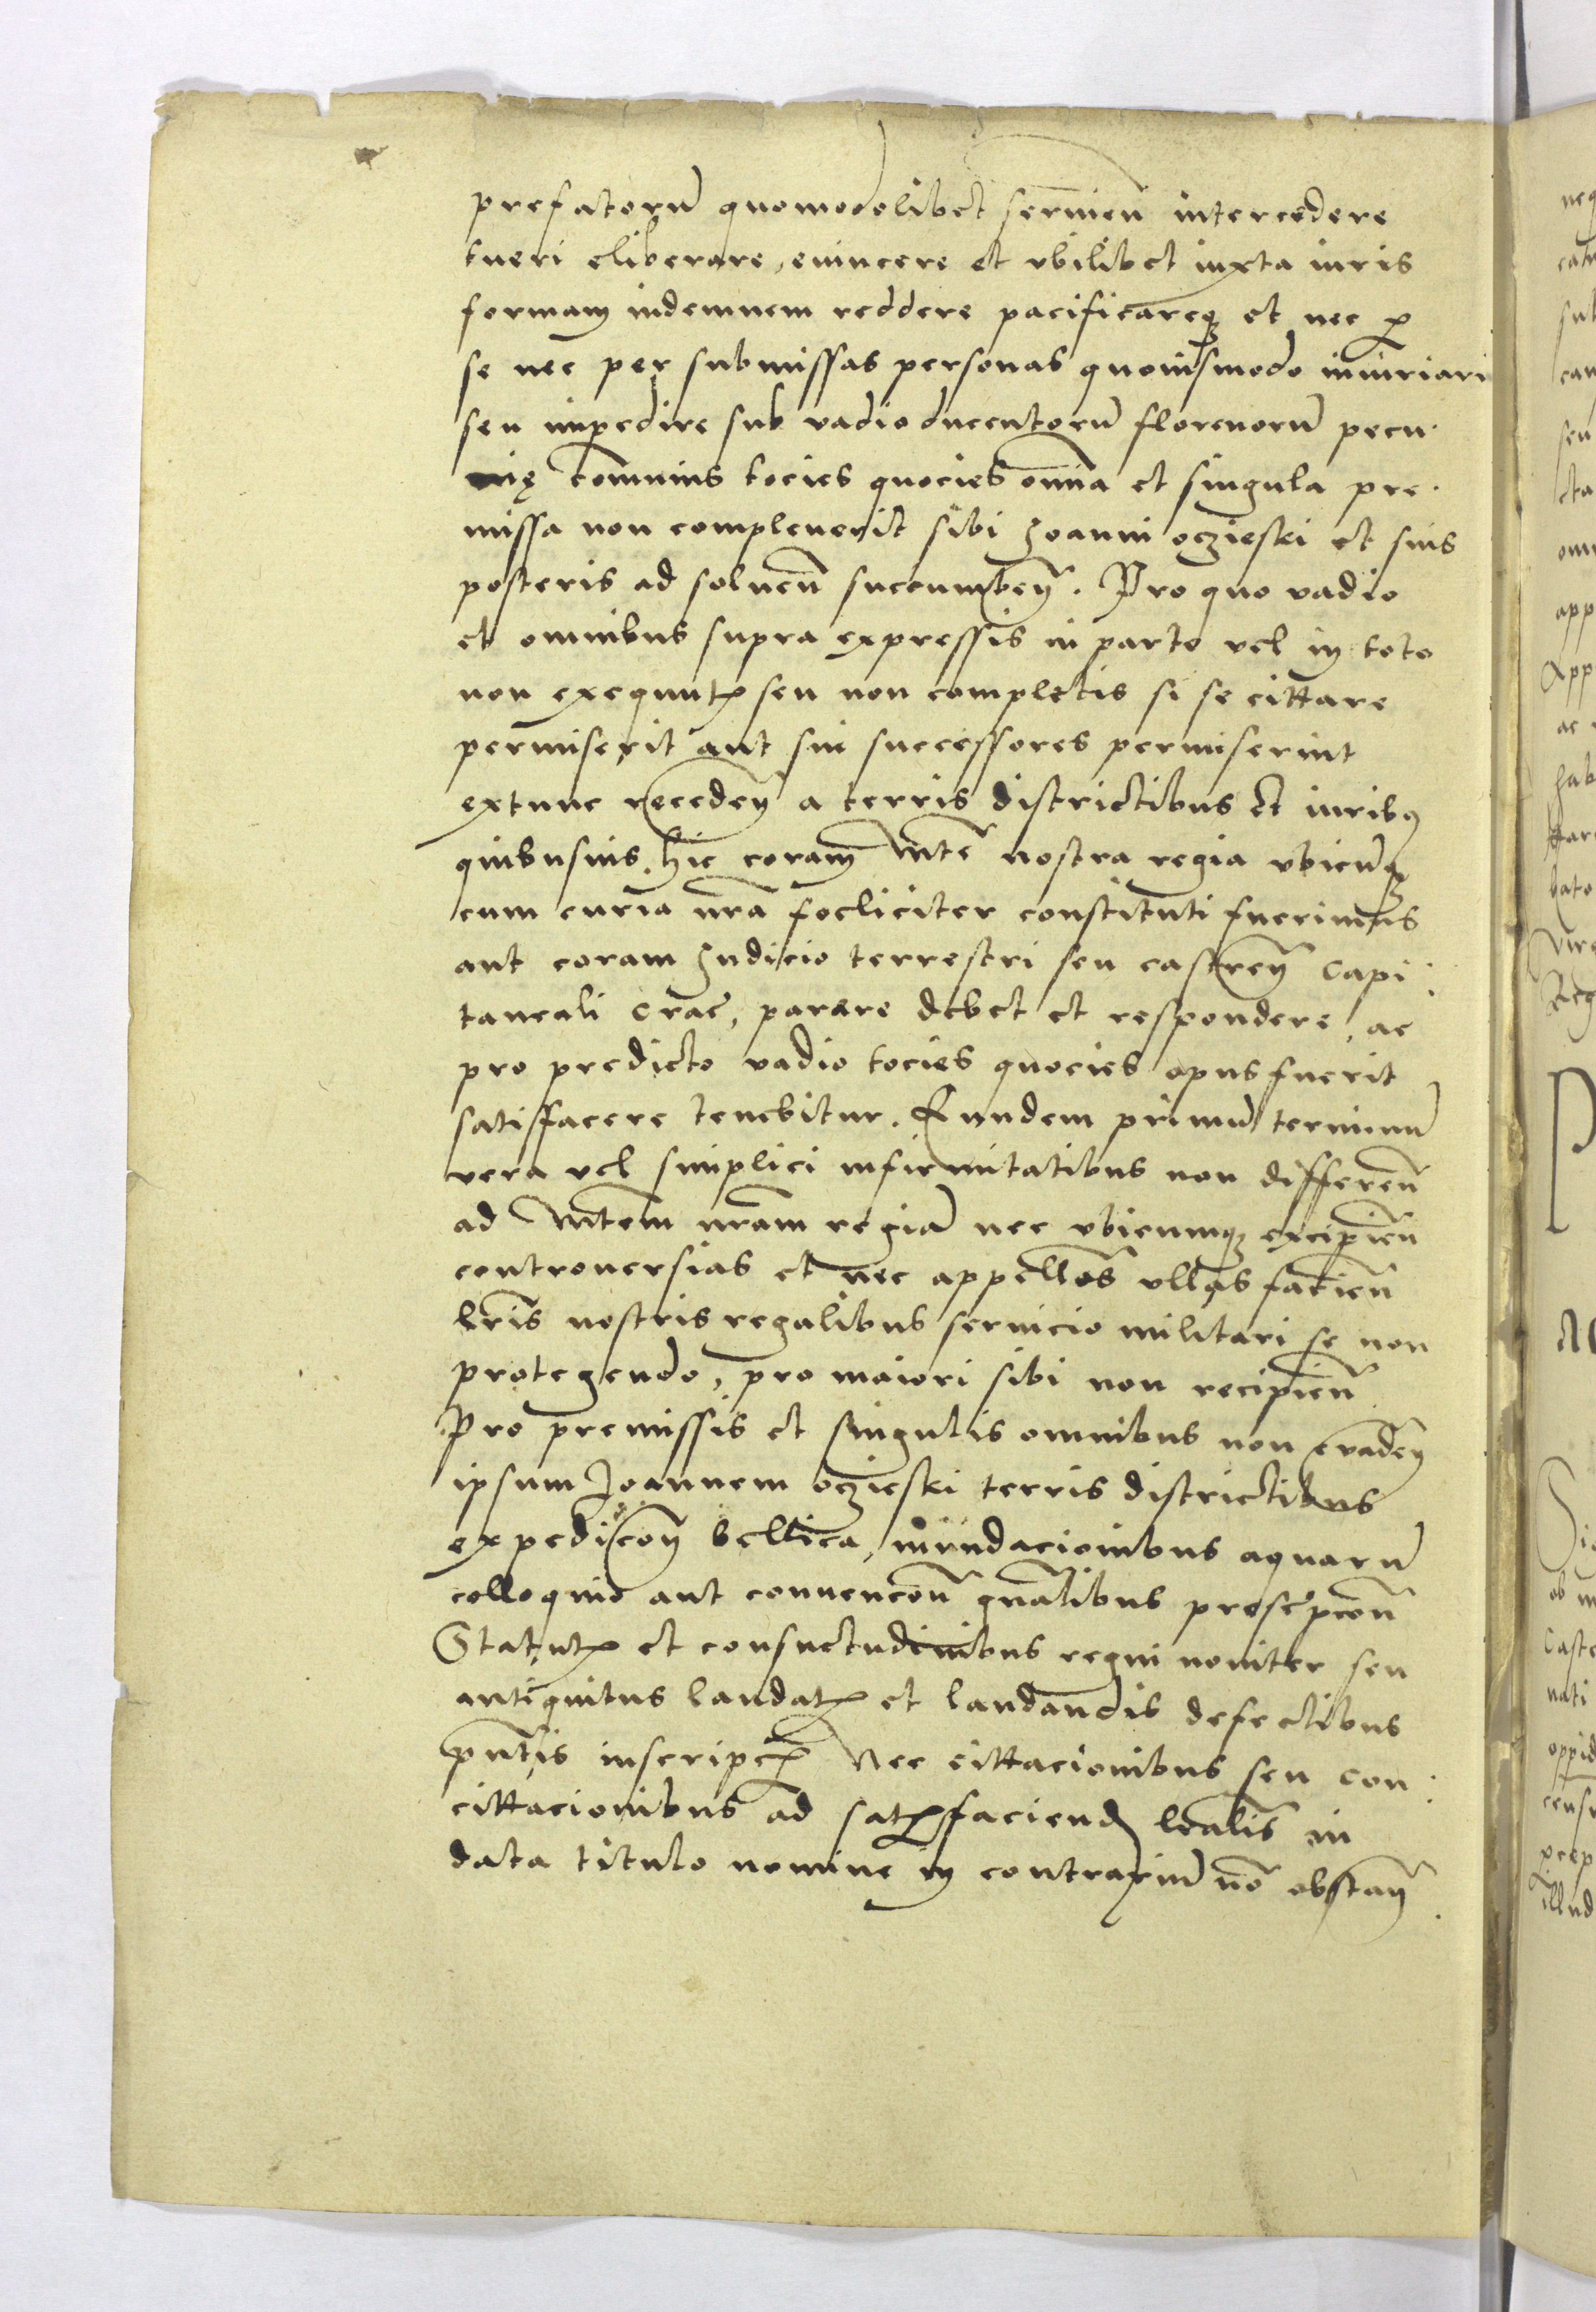 prefatorū quomodolibet serviēn intercedere
tueri eliberare, evincere et vbilibet iuxta iuris
formam indemnem reddere pacificareqȝ et nec ꝑ
se nec per submissas personas quovismodo iniuriari
seu impedire sub vadio ducentorū florenorū pecu.
nię cōmunis tocies quocies om̄ia et singula pre.
missa non complenerit sibi Joanni oczieski et suis
posteris ad soluēn succumbeñ. Pro quo vadio
et omnibus supra expressis in parte vel in toto
non exequut[is] seu non completis si se cittare
permiserit aut sui successores permiserint
extunc recedeñ a terris districtibus et iurib9
quibusuis, hic coram Mt̄e nostra regia vbicūqȝ
cum curia nr̄a foeliciter constituti fuerimus
aut coram Judicio terrestri seu castreñ Capi.
taneali Crac̄, parere debet et respondere, ac
pro predicto vadio tocies quocies opus fuerit
satisfacere tenebitur. Eundem primū terminū
vera vel simplici infirmitatibus non differeñ
ad Mt̄em nr̄am regiā nec vbicumqȝ excipieñ
controuersias et nec appellōs vllas facieñ
lr̄is nostris regalibus seruicio militari se non
protegendo, pro maiori sibi non recipieñ
Pro premissis et singulis omnibus non evadeñ
ipsum Joannem oczieski terris districtibus
expedicōñ bellica, inundacionibus aquarū
colloquio aut conuencōn gn̄alibus prescripcōn
Statut[is] et consuetudinibus regni nouiter seu
antiquitus laudat[is] et laudandis defectibus
pn̄tis inscripc[ionis] Nec cittacionibus seu con.
cittacionibus ad sat[is]faciend[um] lr̄alis in
data titulo nomine in contrariū nō obstañ.